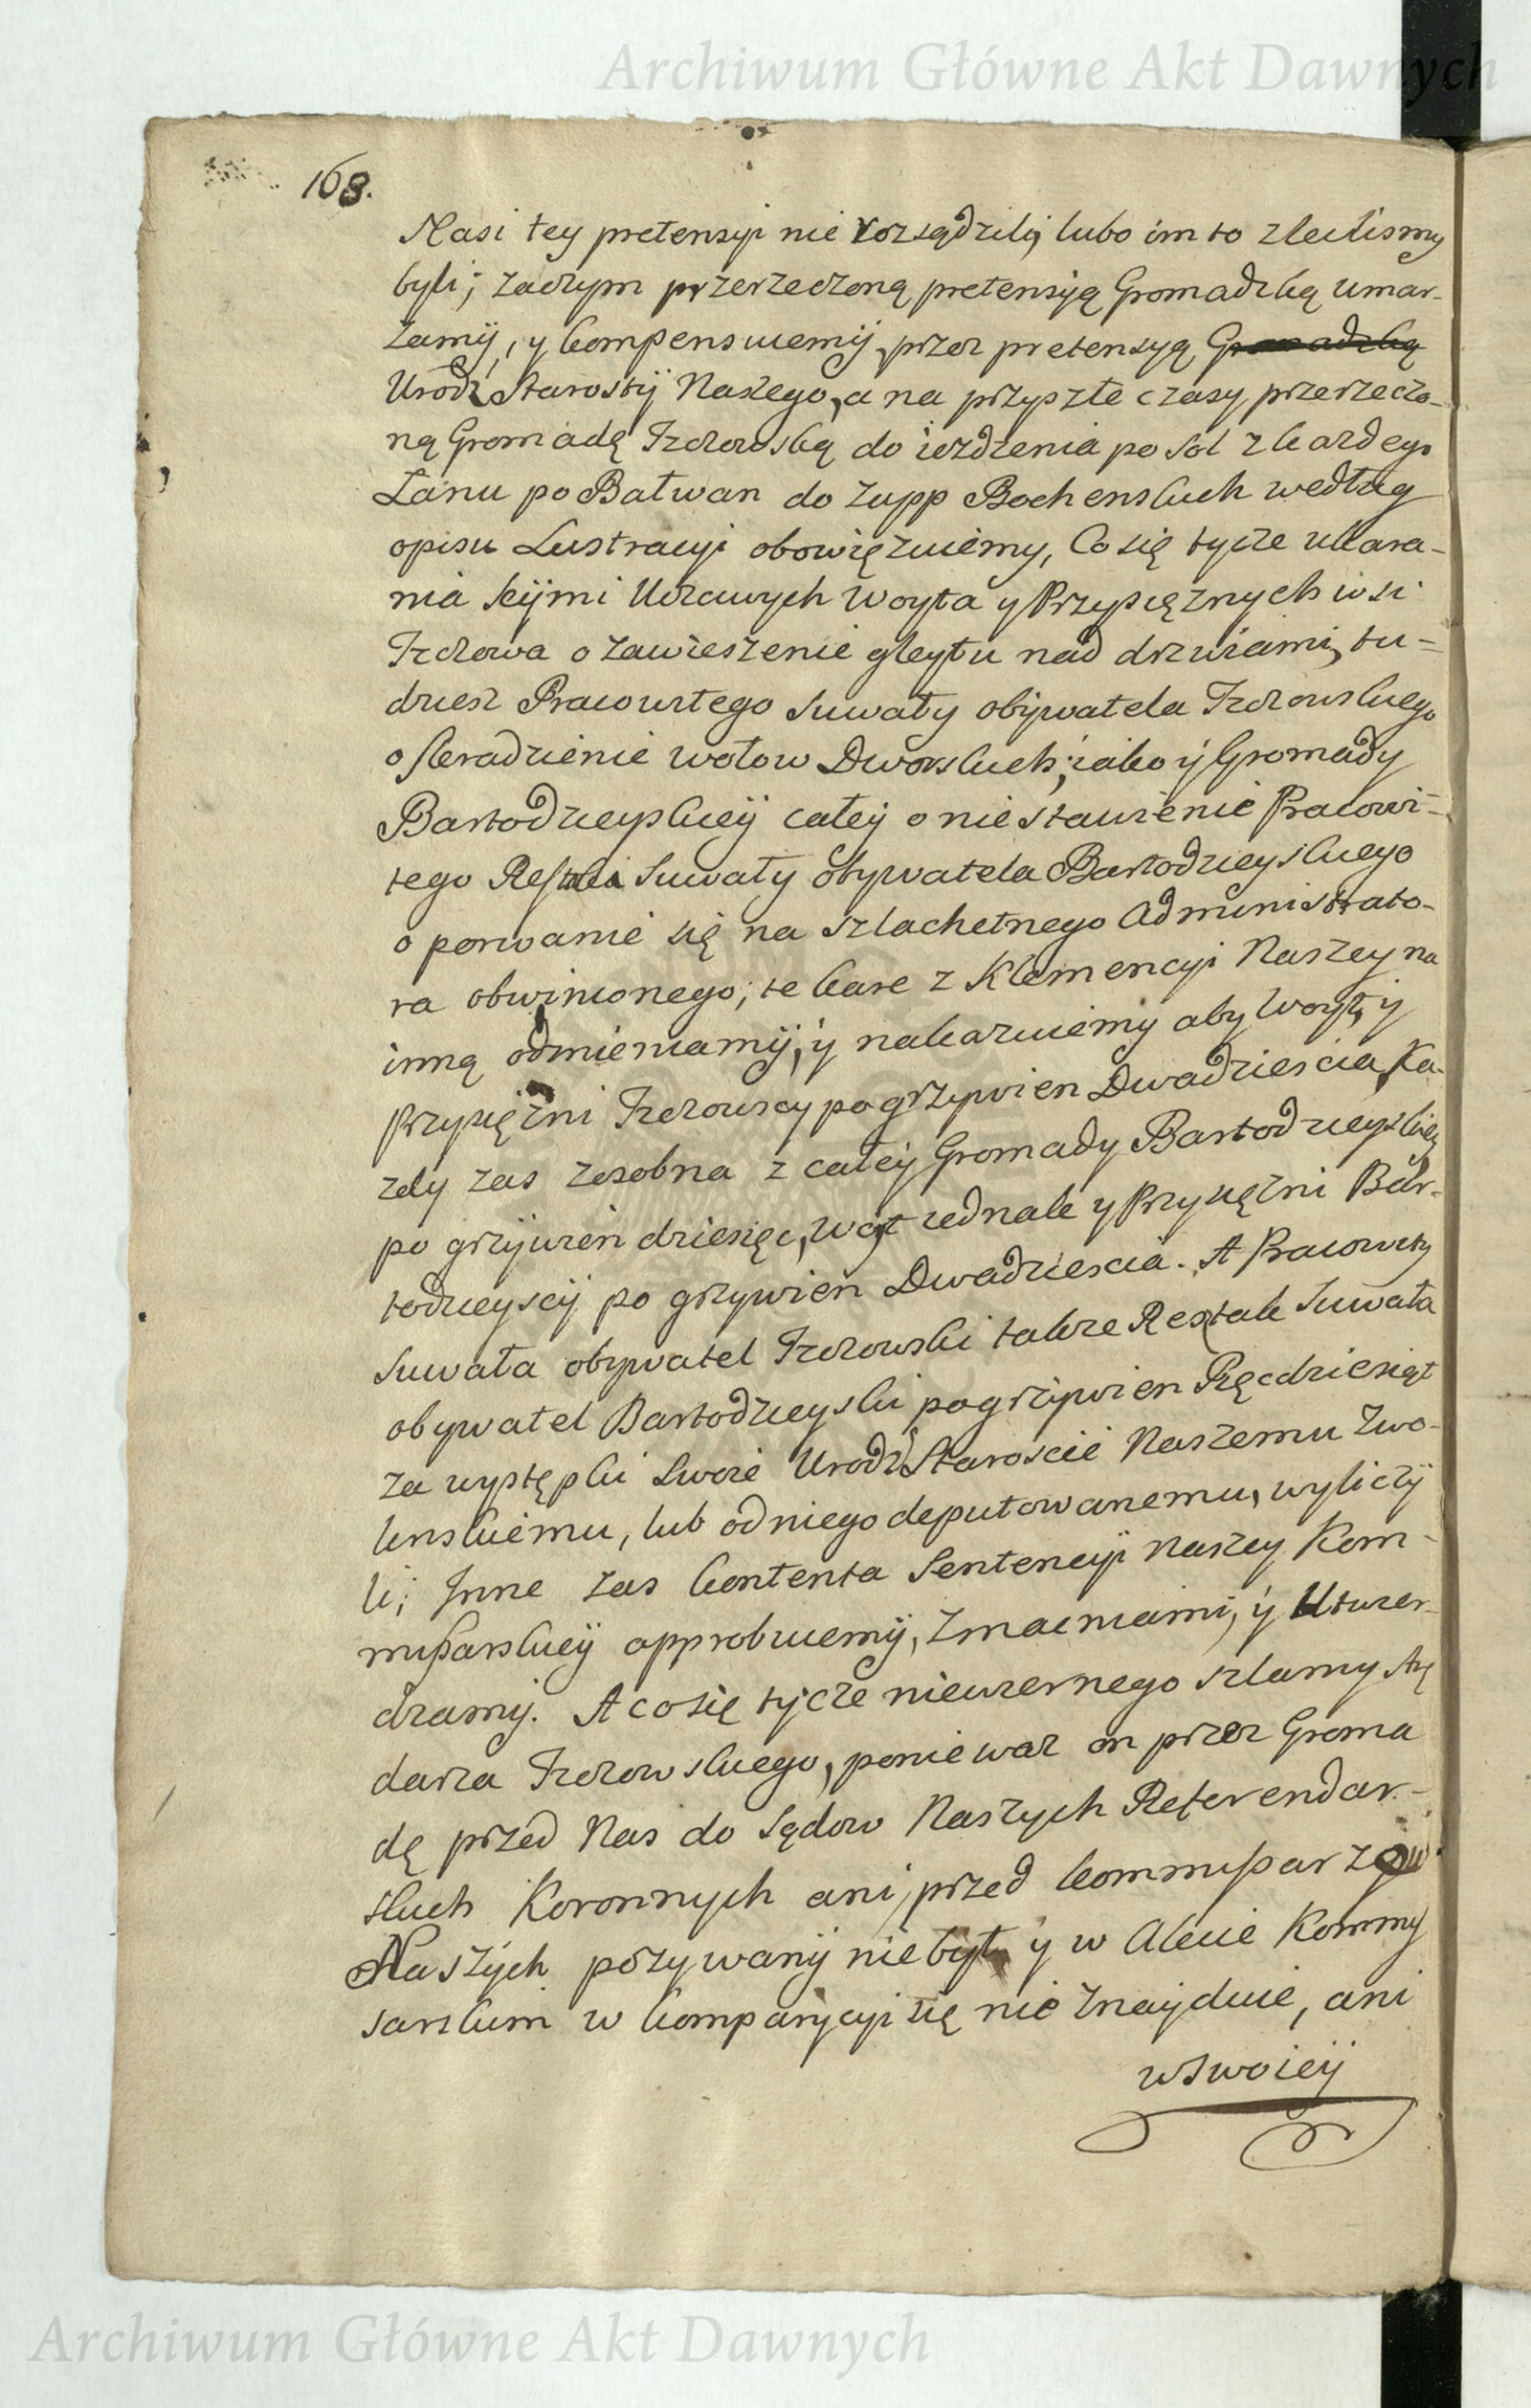 Archiwum Główne Akt Dawnych
168.
Nasi tey pretensyi nie rozsądzili, lubo im to zlecilismy
byli; zaczym przerzeczoną pretensyą Gromadzką umar-
zamy, y kompensuiemy przez pretensyą Gromadzką
Urodz Starosty Naszego, a na przyszłe czasy przerzeczo-
ną Gromadę Jedlowską do ieżdżenia po sol z każdego
Łanu po Bałwan do Zupp Bochenskich według
opisu Lustracyi obowięzuiemy, Co się tycze ukara-
nia Uczciwych Woyta y Przysiężnych wsi
o zawieszenie gleytu nad drzwiami, tu=
dziesz Pracowitego Suwały obywatela
o skradzienie wołow Dworskich; iako y Gromady
Bartodzieyskiey całey o nie stawienie Pracowi=
tego Suwały obywatela Bartodzieyskiego
o porwanie się na szlachetnego Administrato-
ra obwinionego; te karę z Klemencyi Naszey na
inną odmieniamy, y nakazuiemy aby Woyt, y
Przysiężni po grzywien Dwadziescia, Ka-
zdy zas zosobna z całey Gromady Bartodzieyskiey
po grzywien dziesięc, Woyt iednak y Przysiężni Bar-
todzieyscy po grzywien Dwadziescia. A Pracowity
Suwała obywatel także Suwała
obywatel Bartodzieyski po grzywien Pięcdziesiąt
za występki swoie Urodz Staroscie Naszemu Zwo-
lenskiemu, lub od niego deputowanemu, wyliczy
li; Inne zas kontenta Sentencyi Naszey Kom-
missarskiey approbuiemy, zmacniamy, y Utwier-
dzamy. A co się tycze niewiernego szlamy Arę
darza poniewaz on przez Groma
dę przed Nas do Sądow Naszych Referendar-
skich Koronnych ani przed kommissarzow
Naszych pozywany nie był y w Akcie Kommy
sarskim w komparycyi się nie znayduie, ani
w swoiey
Archiwum Główne Akt Dawnych